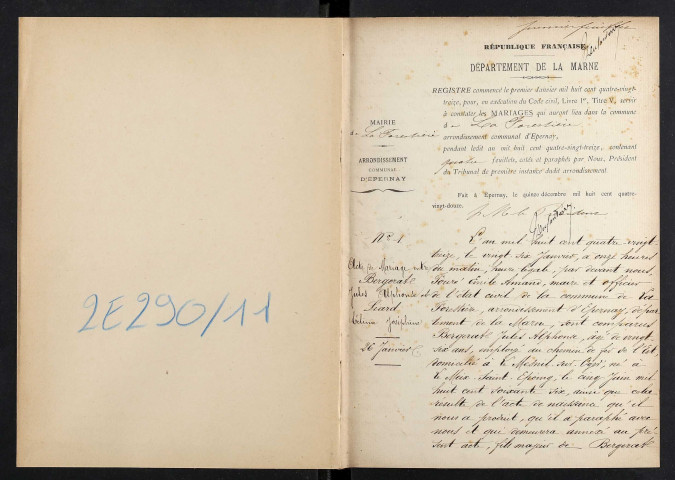 premier feuillet
RÉPUBLIQUE FRANÇAISE
DÉPARTEMENT DE LA MARNE
REGISTRE commencé le premier Janvier mil huit cent quatre-vingt-
treize, pour, en exécution du Code civil, Livre 1er, Titre V, servir
à constater les MARIAGES qui auront lieu dans la commune
d La Forestière
arrondissement communal d'Epernay,
pendant ledit an mil huit cent quatre-vingt-treize, contenant
quatre feuillets, cotés et paraphés par Nous, Président
du Tribunal de première instance dudit arrondissement.
Fait à Epernay, le quinze décembre mil huit cent quatre-
vingt-douze.
MAIRIE
de La Forestière
ARRONDISSEMENT
COMMUNAL
D'EPERNAY
2E290/11
No 1
Acte de Mariage entre
Bergerat
Jules Alphonse et
Liard
Joséphine
26 Janvier
L'an mil huit cent quatre-vingt-
treize, le vingt six Janvier, à onze heures
du matin, heure légale, par devant nous,
Fouré Emile Amand, maire et officier
de l'état civil de la commune de La
Forestière, arrondissement d'Epernay, dépar-
tement de la Marne, sont comparus
Bergerat Jules Alphonse, âgé de vingt-
six ans, employé au chemin de fer de l'Est
domicilié à le Mesnil-sur-Oger, né à
le Meix-Saint-Epoing, le cinq Juin mil
huit cent soixante six, ainsi que cela
résulte de l'acte de naissance qu'il
nous a produit, qu'il a paraphé avec
nous et qui demeurera annexé au pré-
sent acte, fils majeur de Bergerat